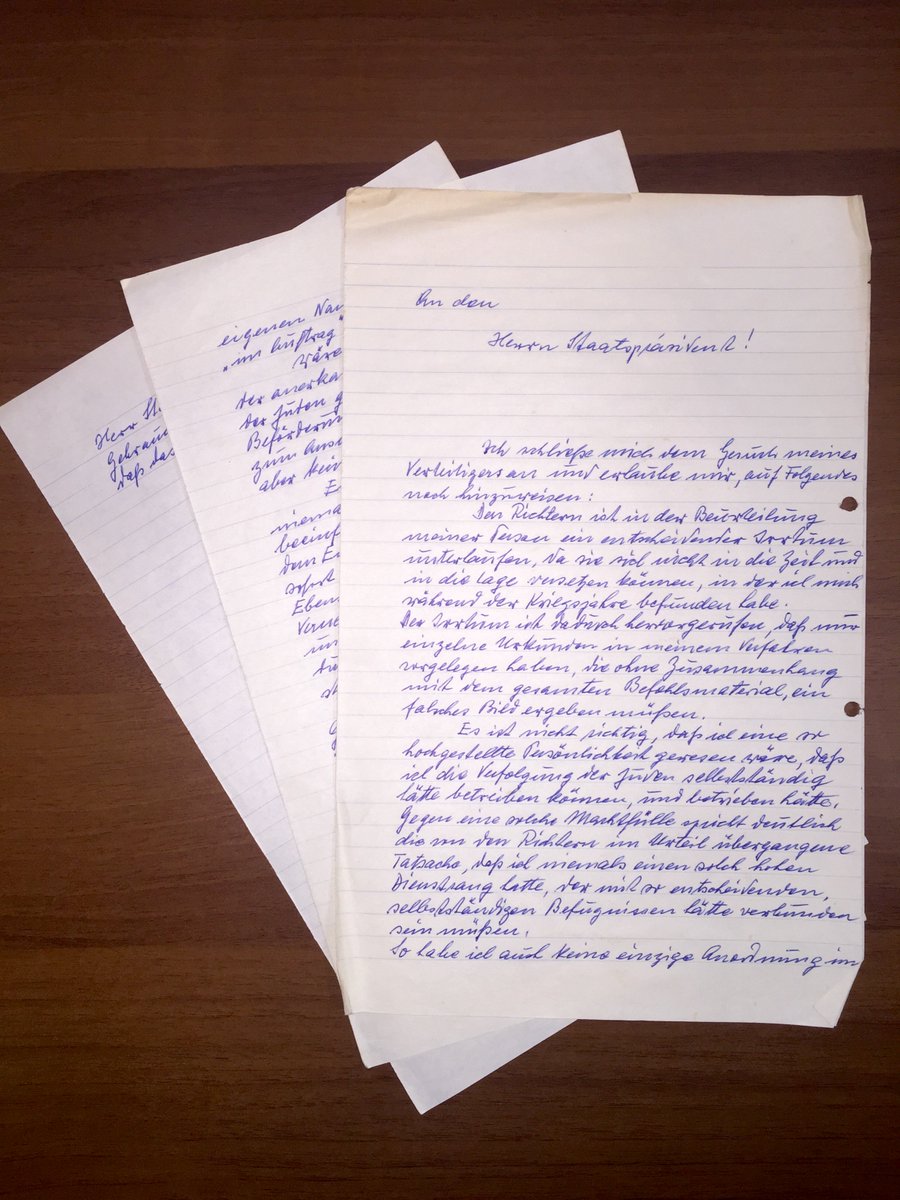 An den
Herrn Staatspräsident!
Ich schließe mich dem Gesuch meines
Verteitigers an und erlaube mir, auf Folgendes
noch hinzuweisen:
Den Richtern ist in der Beurteilung
meiner Person ein entscheidender Irrtum
unterlaufen, da sie sich nicht in die Zeit und
in die Lage versetzen können, in der ich mich
während der Kriegsjahre befunden habe.
Der Irrtum ist dadurch hervorgerufen, daß nur
einzelne Urkunden in meinem Verfahren
vorgelegen haben, die ohne Zusammenhang
mit dem gesamten Befehlsmaterial, ein
falsches Bild ergeben müßen.
Es ist nicht richtig, daß ich eine so
hochgestellte Persönlichkeit gewesen wäre, daß
ich die Verfolgung der Juden selbstständig
hätte betreiben können, und betrieben hätte.
Gegen eine solche Machtfülle spricht deutlich
die von den Richtern im Urteil übergangene
Tatsache, daß ich niemals einen solch hohen
Dienstrang hatte, der mit so entscheidenden,
selbstständigen Befugnissen hätte verbunden
sein müßen.
So habe ich auch keine einzige Anordnung im
eigenen Nam
"im Auftrag"
Wäre
der anerka
der Juden g
Beförderun
zum Ausd
aber kein
E
niema
beeinf
dem E
sofort
Eben
Verne
un
du
st
Herr St
Gebrauc
daß das